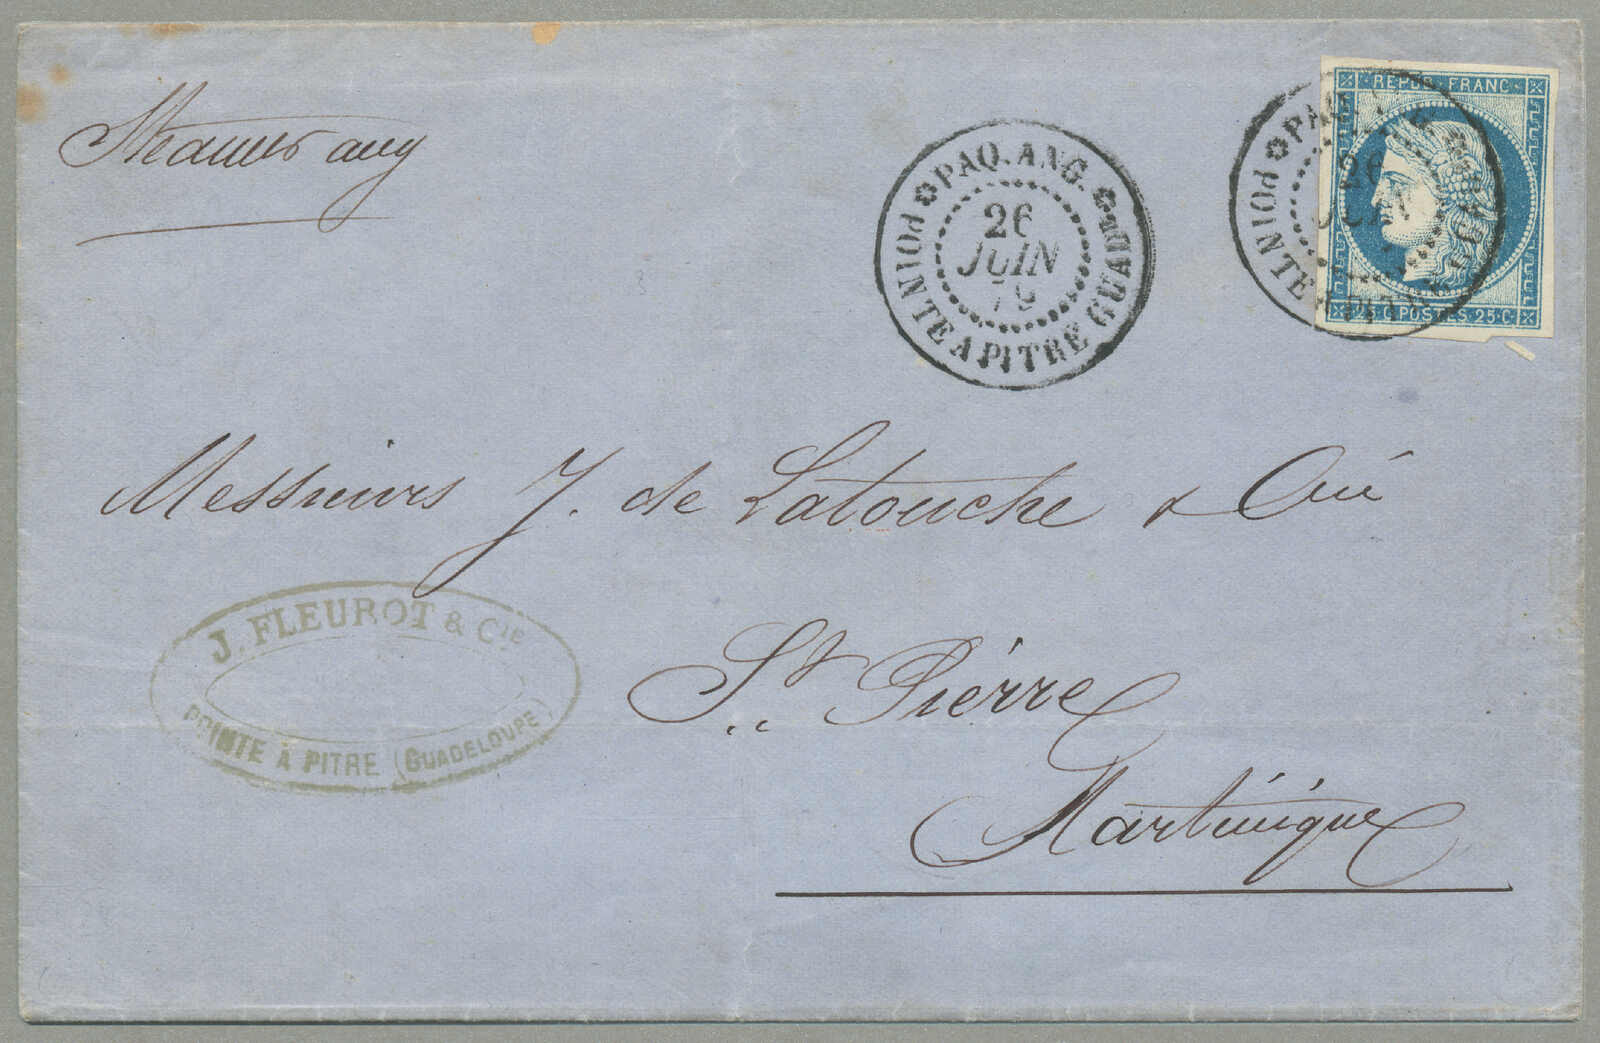 Steamer ang
PAQ. ANG.
26
JUIN
76
POINTE A PITRE GUADPE
REPUB. FRANC.
PAQ.
26
JUIN
POINTE A PITRE GUADPE
25 C. POSTES 25 C.
Messieurs J. de Latouche & Cie
J. FLEUROT & CIE
POINTE À PITRE (GUADELOUPE)
St. Pierre
Martinique